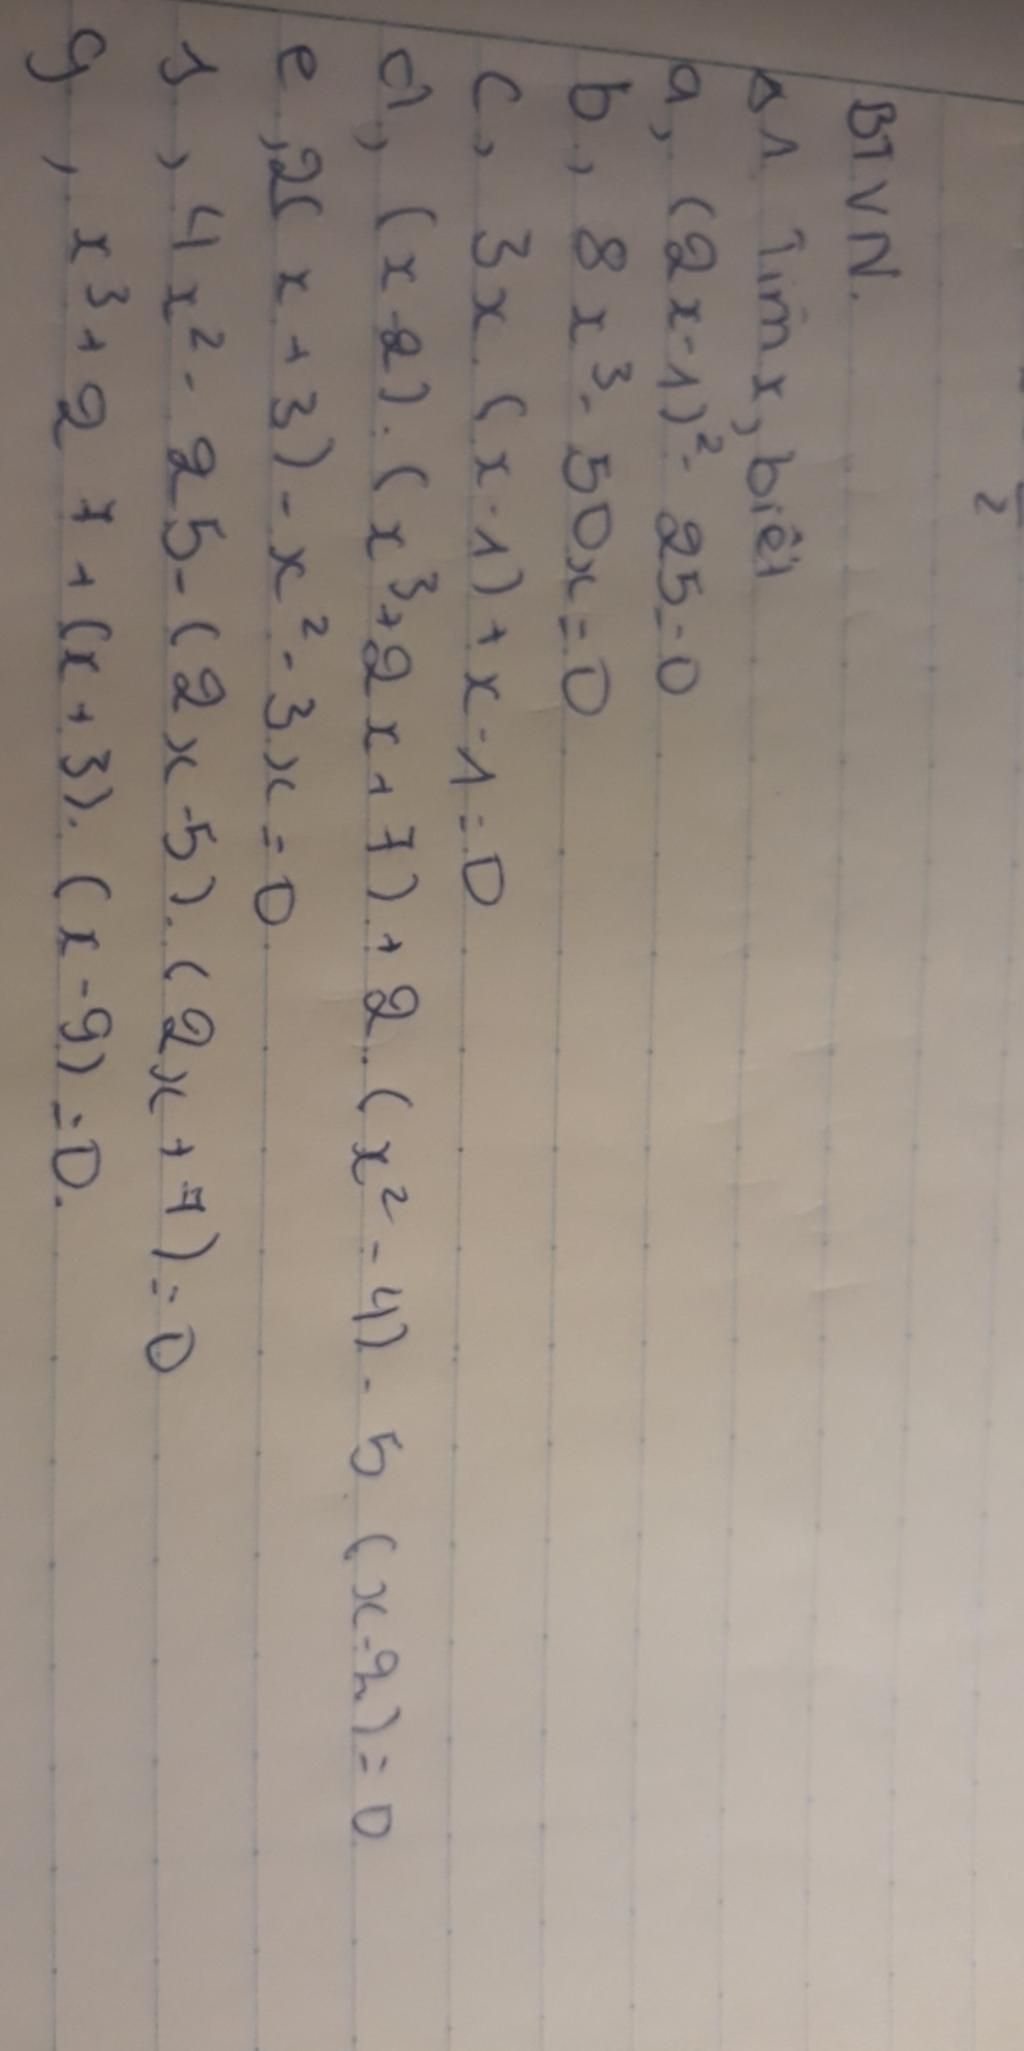 2
BTVN.
B1 Tìm x, biết
a, (2x-1)² - 25 = 0
b, 8x³ - 50x = 0
c, 3x.(x-1) + x-1 = 0
d, (x-2).(x³+2x+7)+2.(x²-4)-5(x-2)=0
e, 2(x+3)-x²-3x=0
f, 4x²-25-(2x-5).(2x+7)=0
g, x³+27+(x+3).(x-9)=0.